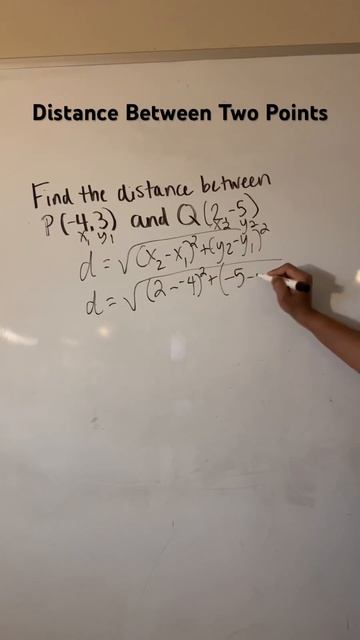 Distance Between Two Points
Find the distance between
P(-4,3) and Q(2,-5)
x₁ y₁ x₂ y₂
d = √(x₂-x₁)²+(y₂-y₁)²
d = √(2--4)²+(-5-